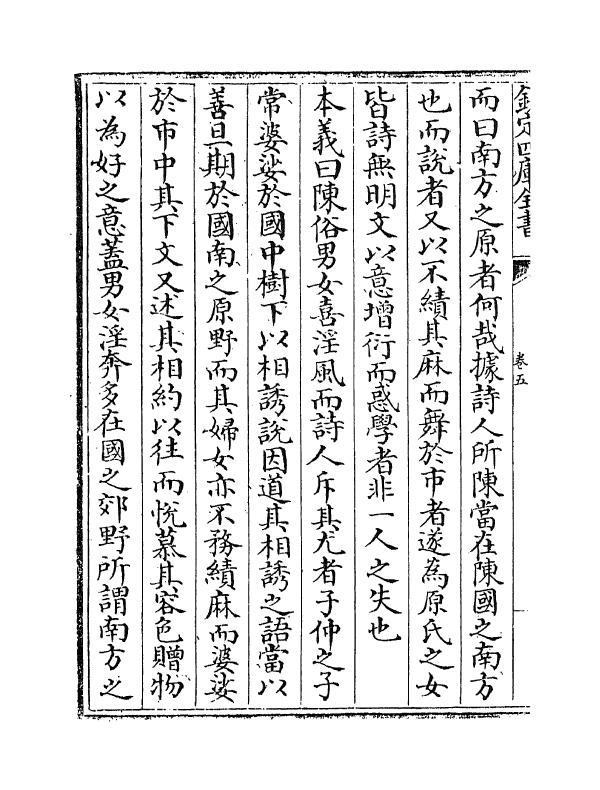 欽定四庫全書
卷五
而曰南方之原者何哉據詩人所陳當在陳國之南方
也而說者又以不績其麻而舞於市者遂為原氏之女
皆詩無明文以意增衍而惑學者非一人之失也
本義曰陳俗男女喜淫風而詩人斥其尤者子仲之子
常婆娑於國中樹下以相誘說因道其相誘之語當以
善旦期於國南之原野而其婦女亦不務績麻而婆娑
於市中其下文又述其相約以往而悅慕其容色贈物
以為好之意蓋男女淫奔多在國之郊野所謂南方之